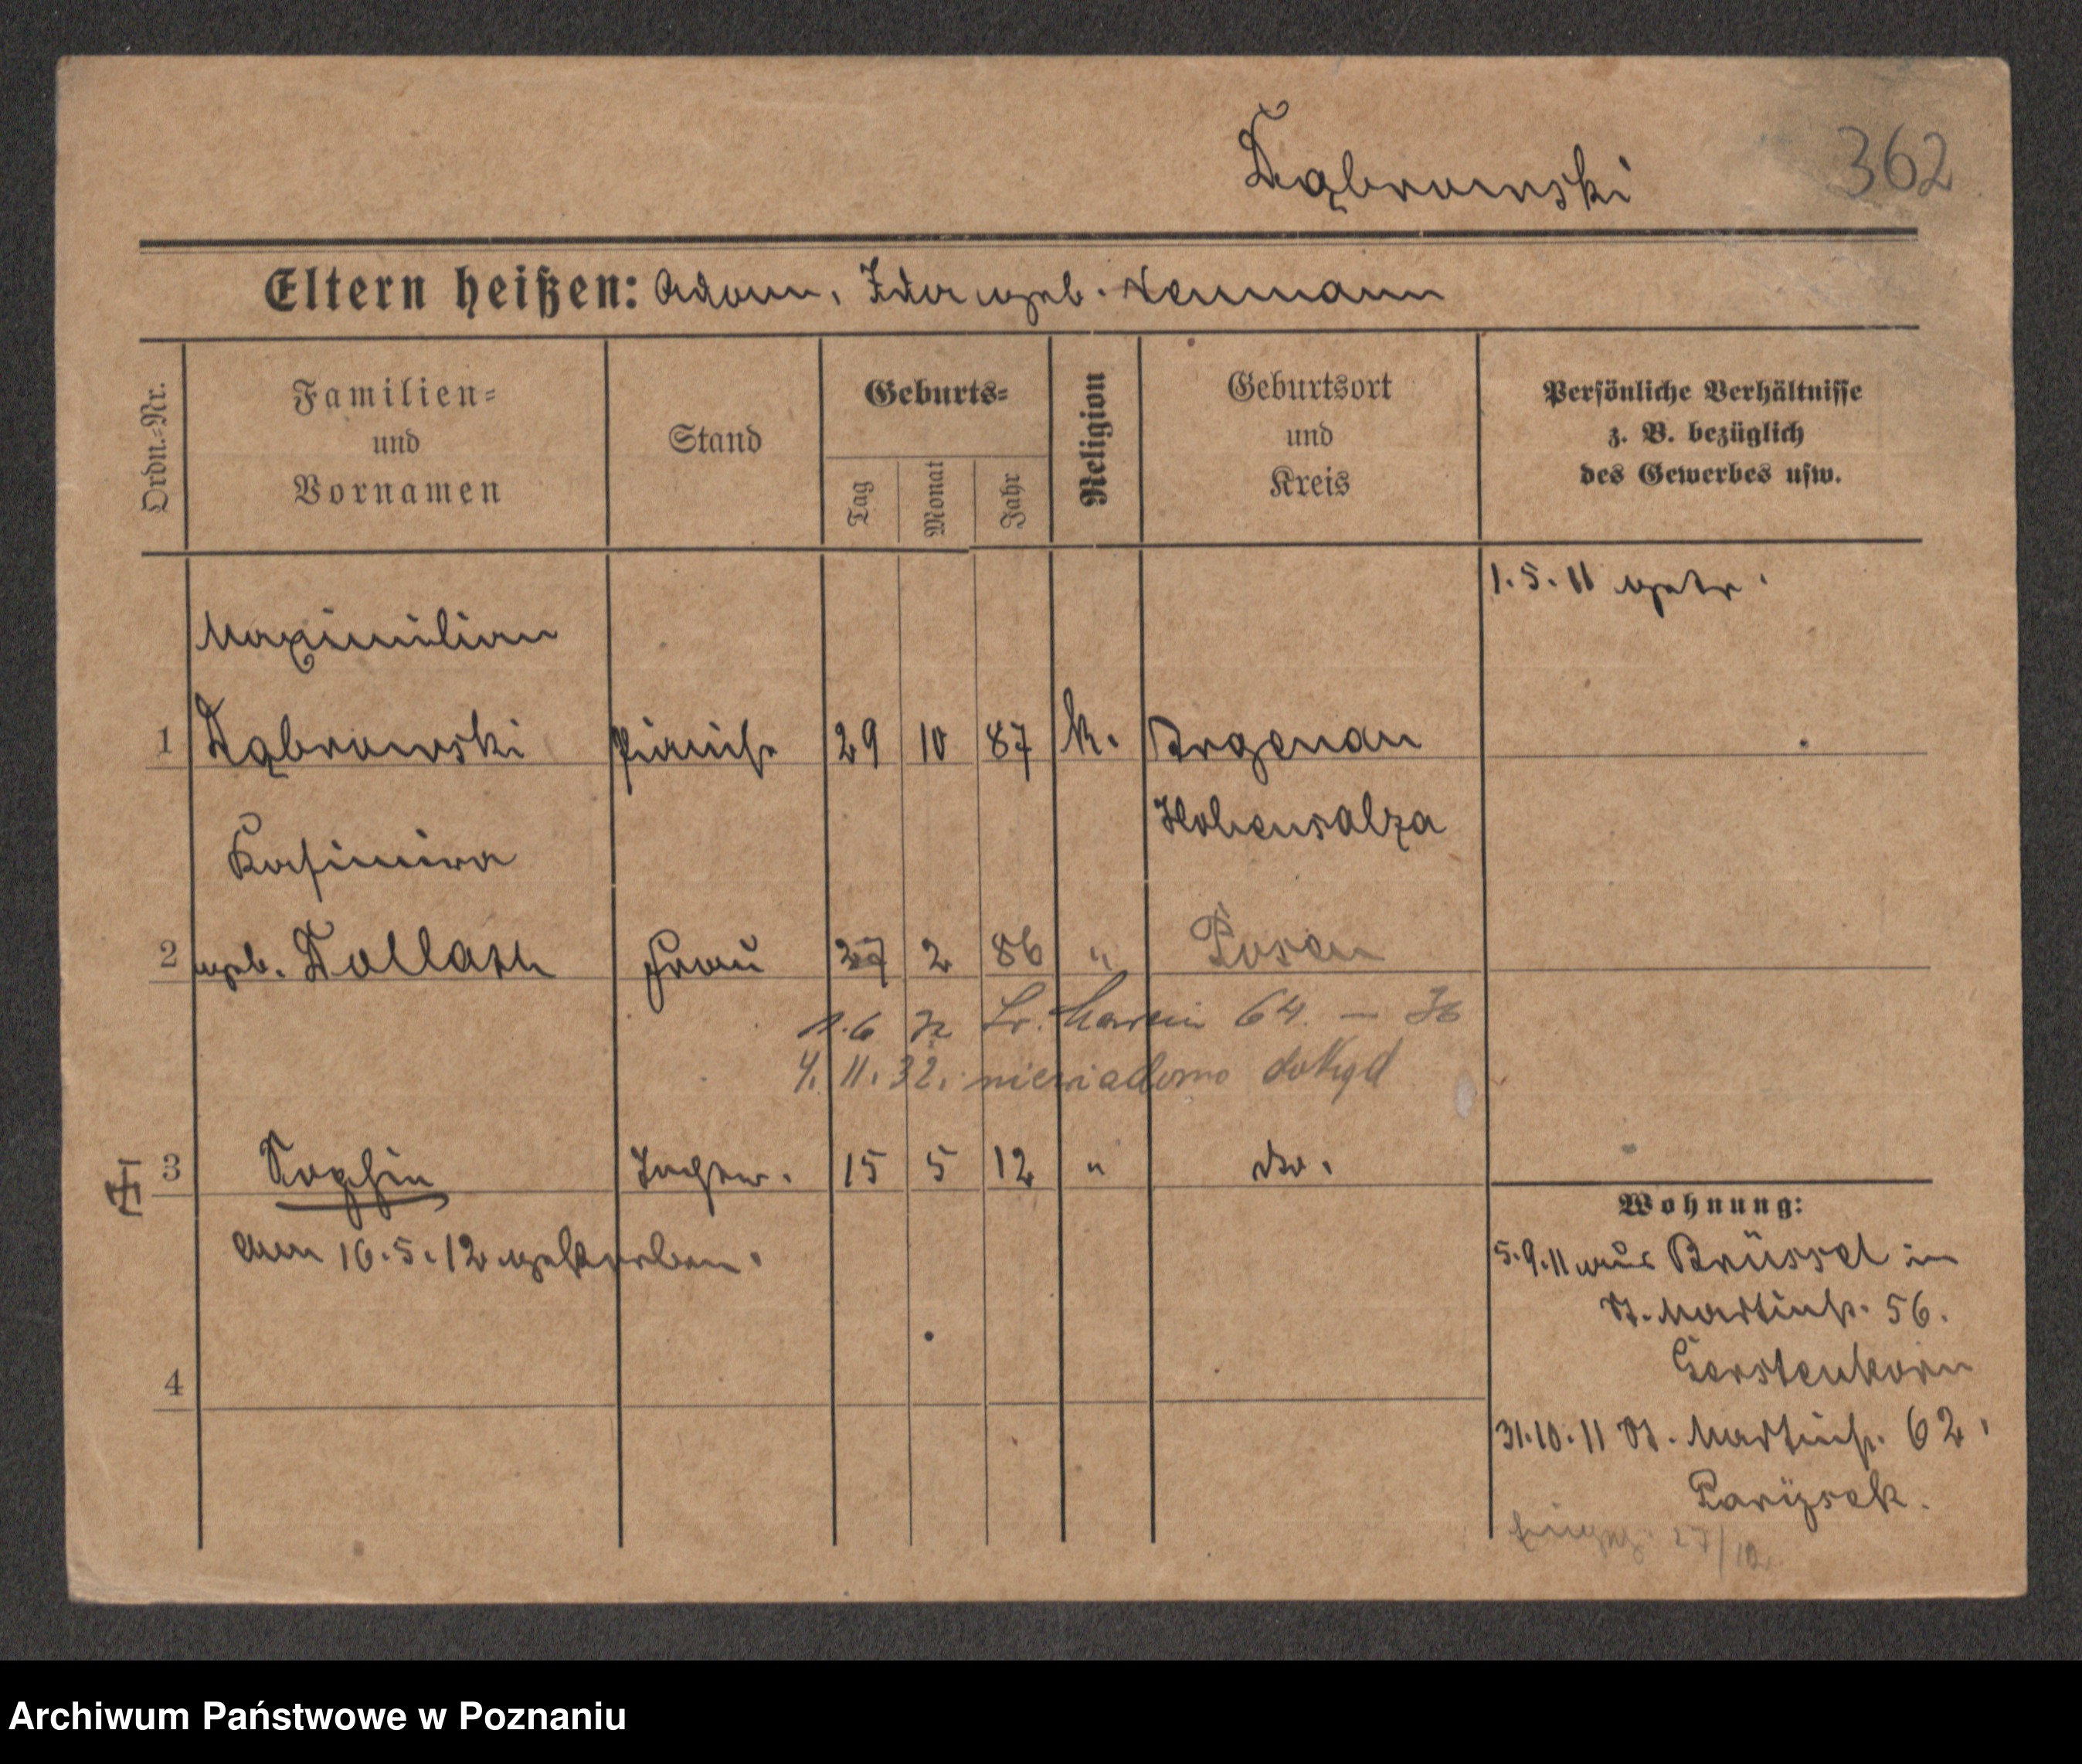 Dąbrowski
362
Eltern heißen: Adam, Ida geb. Neumann
Ordn.-Nr.
Familien-
und
Vornamen
Stand
Geburts-
Tag
Monat
Jahr
Religion
Geburtsort
und
Kreis
Persönliche Verhältnisse
z. B. bezüglich
des Gewerbes usw.
1.5.11 getr.
Maximilian
1 Dąbrowski Pianist 29 10 87 k. Argenau
Hohensalza
Kasimira
2 geb. Frau 27 2 86 " Posen
1.6 Św. Marcin 64.
4. 11. 32. niewiadomo dokąd
3 Sophie Tochter. 15 5 12 " do.
am 16.5.12 gestorben.
4
Wohnung:
5.9.11 aus Brüssel in
St. Martinstr. 56.
Gerstenkorn
31.10.11 St. Martinstr. 62.
Paryzsek.
27/12
Archiwum Państwowe w Poznaniu